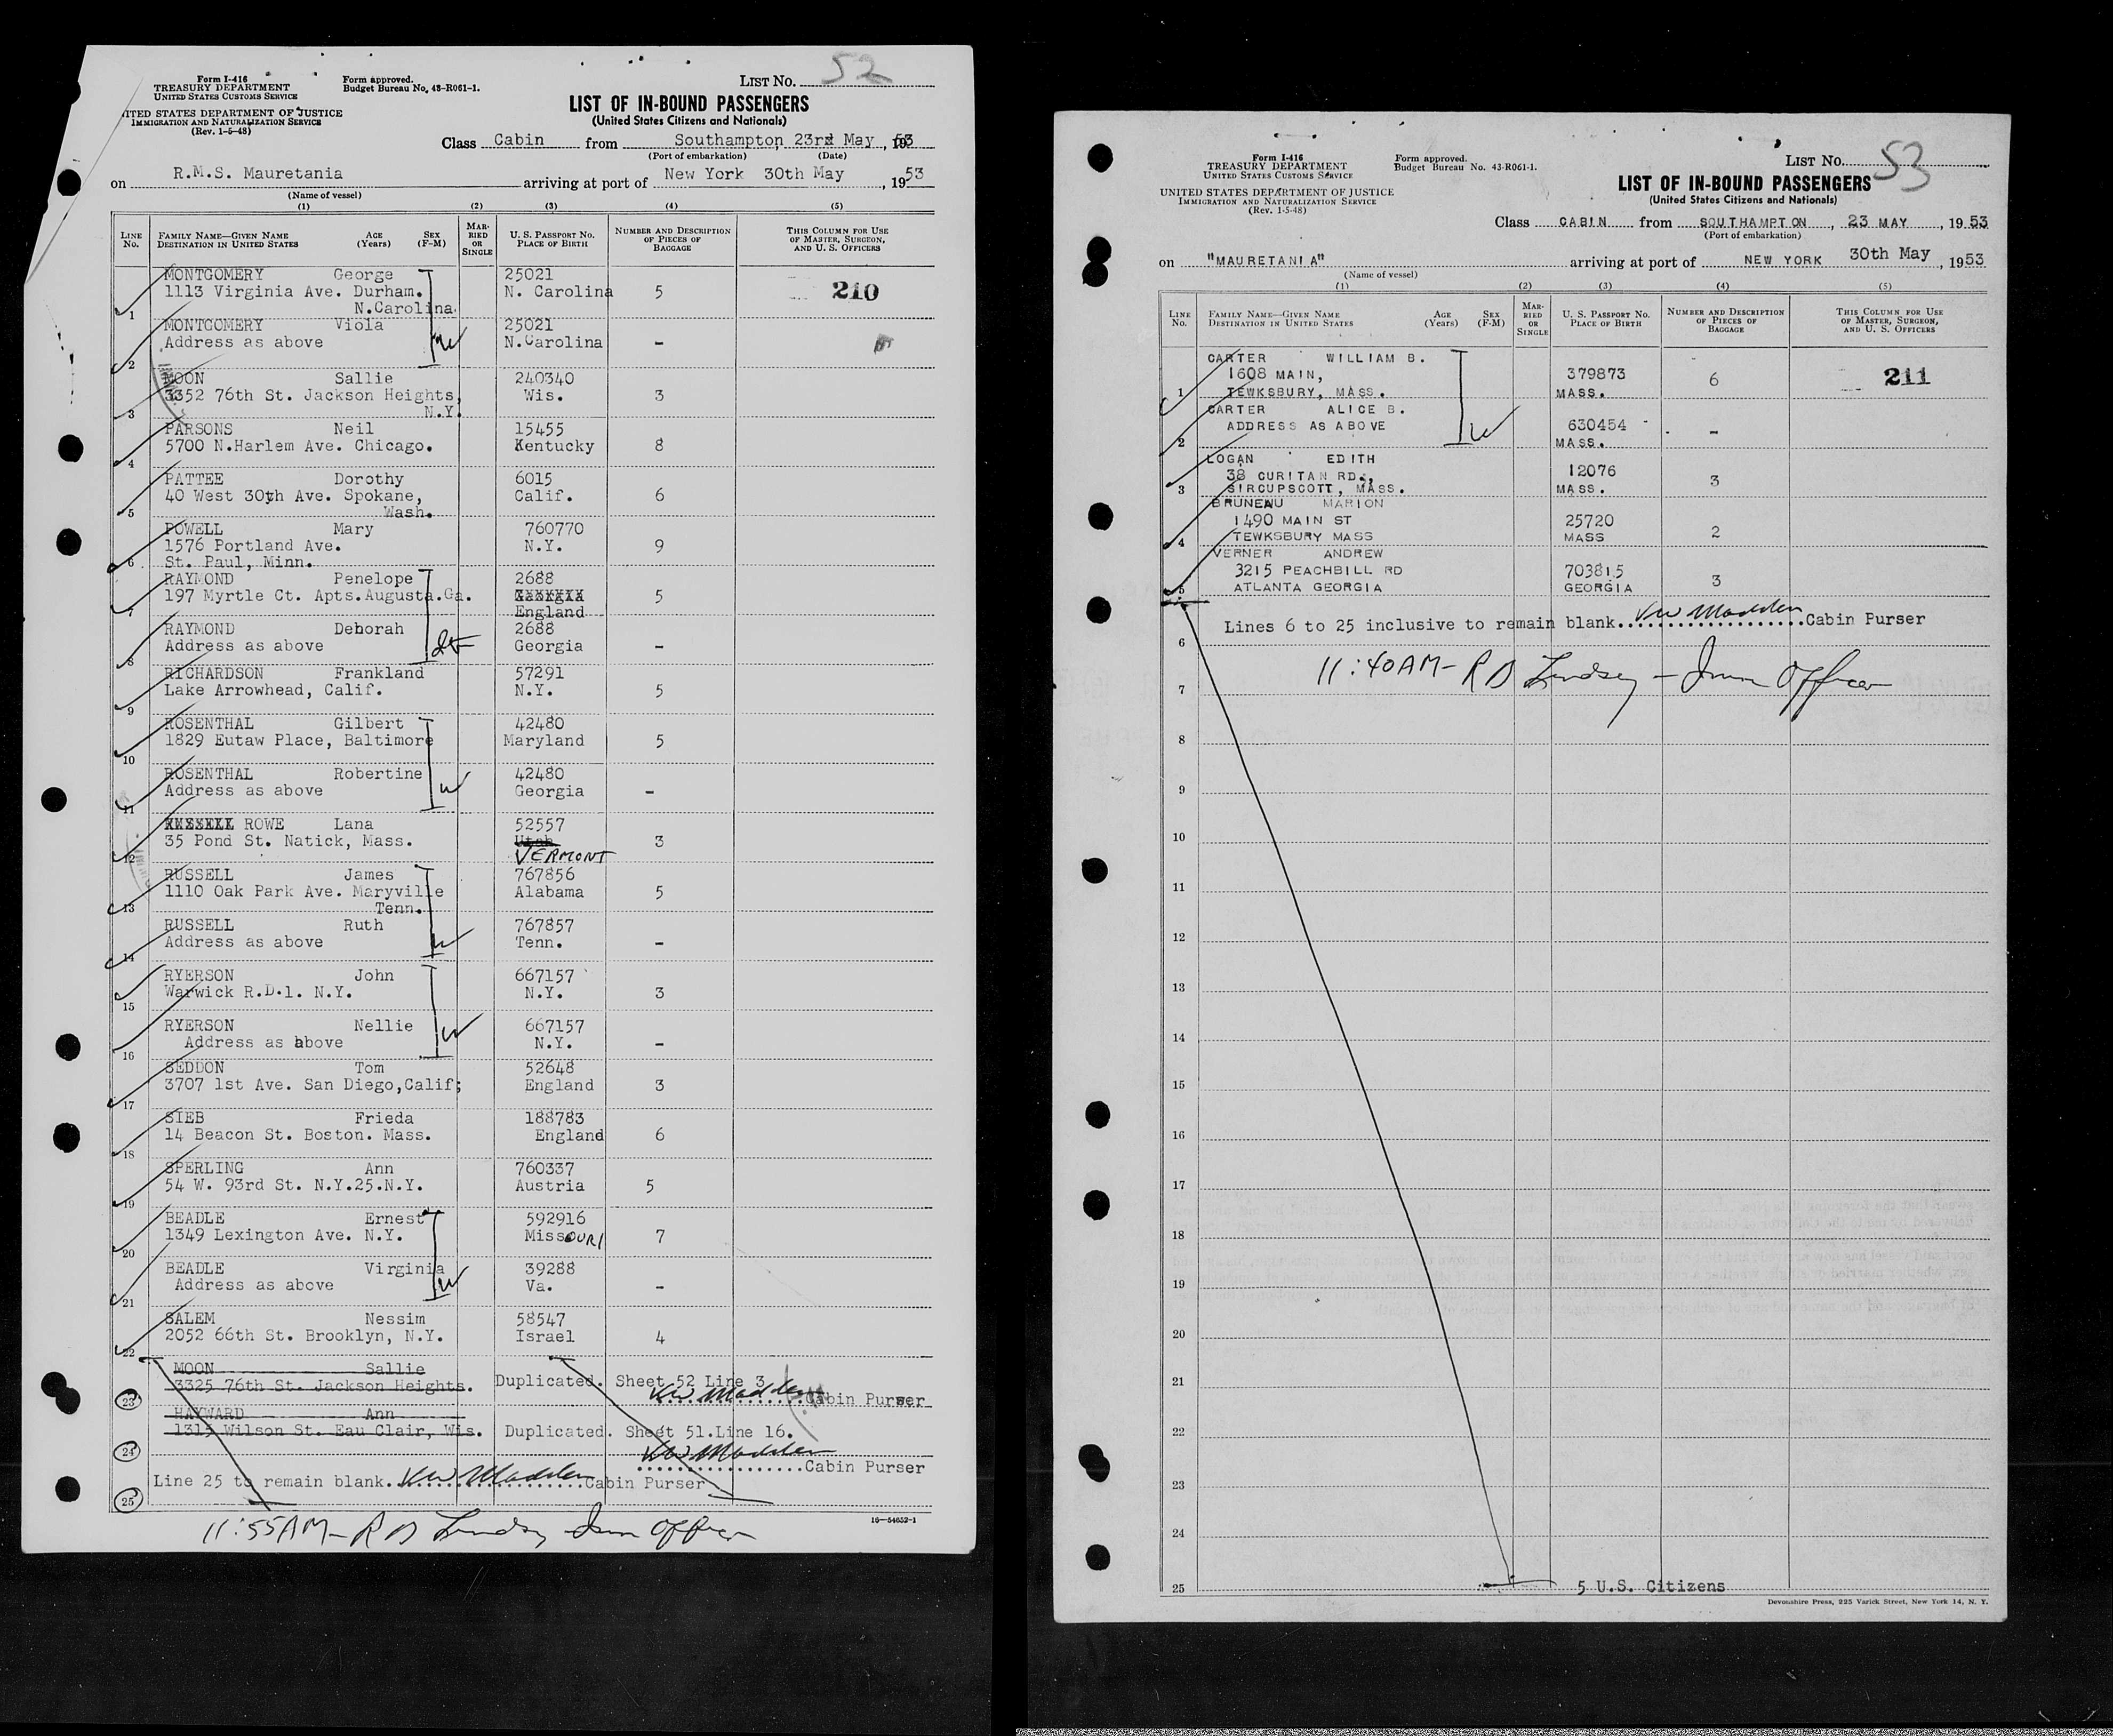 Form I-416
TREASURY DEPARTMENT
UNITED STATES CUSTOMS SERVICE
ITED STATES DEPARTMENT OF JUSTICE
IMMIGRATION AND NATURALIZATION SERVICE
(Rev. 1-5-48)
Form approved.
Budget Bureau No. 43-R061-1.
LIST No. 52
LIST OF IN-BOUND PASSENGERS
(United States Citizens and Nationals)
Class Cabin from Southampton 23rd May, 1953
(Port of embarkation) (Date)
on R.M.S. Mauretania arriving at port of New York 30th May, 1953
(Name of vessel)
(1) (2) (3) (4) (5)
LINE No. FAMILY NAME—GIVEN NAME DESTINATION IN UNITED STATES AGE (Years) SEX (F-M) MARRIED OR SINGLE U. S. PASSPORT NO. PLACE OF BIRTH NUMBER AND DESCRIPTION OF PIECES OF BAGGAGE THIS COLUMN FOR USE OF MASTER, SURGEON, AND U. S. OFFICERS
MONTGOMERY George 25021
1113 Virginia Ave. Durham. N. Carolina 5 210
1 N.Carolina.
MONTGOMERY Viola 25021
Address as above N.Carolina -
2
MOON Sallie 240340
3352 76th St. Jackson Heights, Wis. 3
3 N.Y.
PARSONS Neil 15455
5700 N.Harlem Ave. Chicago. Kentucky 8
4
PATTEE Dorothy 6015
40 West 30th Ave. Spokane, Calif. 6
5 Wash.
POWELL Mary 760770
1576 Portland Ave. N.Y. 9
6 St. Paul, Minn.
RAYMOND Penelope 2688
197 Myrtle Ct. Apts.Augusta.Ga. Georgia 5
7 England
RAYMOND Deborah 2688
Address as above Georgia -
8
RICHARDSON Frankland 57291
Lake Arrowhead, Calif. N.Y. 5
9
ROSENTHAL Gilbert 42480
1829 Eutaw Place, Baltimore Maryland 5
10
ROSENTHAL Robertine 42480
Address as above Georgia -
11
RUSSELL ROWE Lana 52557
35 Pond St. Natick, Mass. Utah 3
12 VERMONT
RUSSELL James 767856
1110 Oak Park Ave. Maryville Alabama 5
13 Tenn.
RUSSELL Ruth 767857
Address as above Tenn. -
14
RYERSON John 667157
Warwick R.D.1. N.Y. N.Y. 3
15
RYERSON Nellie 667157
Address as above N.Y. -
16
SEDDON Tom 52648
3707 1st Ave. San Diego,Calif; England 3
17
SIEB Frieda 188783
14 Beacon St. Boston. Mass. England 6
18
SPERLING Ann 760337
54 W. 93rd St. N.Y.25.N.Y. Austria 5
19
BEADLE Ernest 592916
1349 Lexington Ave. N.Y. Missouri 7
20
BEADLE Virginia 39288
Address as above Va. -
21
SALEM Nessim 58547
2052 66th St. Brooklyn, N.Y. Israel 4
22
MOON Sallie
3325 76th St. Jackson Heights. Duplicated. Sheet 52 Line 3
23 KW Madden Cabin Purser
HAYWARD Ann
1315 Wilson St. Eau Clair, Wis. Duplicated. Sheet 51.Line 16.
24 KW Madden Cabin Purser
Line 25 to remain blank. KW Madden Cabin Purser
25
16—54652-1
11:55AM - R D Lindsey - Imm Officer
Form I-416
TREASURY DEPARTMENT
UNITED STATES CUSTOMS SERVICE
UNITED STATES DEPARTMENT OF JUSTICE
IMMIGRATION AND NATURALIZATION SERVICE
(Rev. 1-5-48)
Form approved.
Budget Bureau No. 43-R061-1.
LIST No. 53
LIST OF IN-BOUND PASSENGERS
(United States Citizens and Nationals)
Class CABIN from SOUTHAMPTON, 23 MAY, 1953
(Port of embarkation)
on "MAURETANIA" arriving at port of NEW YORK 30th May, 1953
(Name of vessel)
(1) (2) (3) (4) (5)
LINE No. FAMILY NAME—GIVEN NAME DESTINATION IN UNITED STATES AGE (Years) SEX (F-M) MARRIED OR SINGLE U. S. PASSPORT NO. PLACE OF BIRTH NUMBER AND DESCRIPTION OF PIECES OF BAGGAGE THIS COLUMN FOR USE OF MASTER, SURGEON, AND U. S. OFFICERS
CARTER WILLIAM B.
1608 MAIN, 379873 6 211
1 TEWKSBURY, MASS. MASS.
CARTER ALICE B.
ADDRESS AS ABOVE 630454 -
2 MASS.
LOGAN EDITH
38 CURITAN RD., 12076 3
3 SIRCUPSCOTT, MASS. MASS.
BRUNEAU MARION
1490 MAIN ST 25720 2
4 TEWKSBURY MASS MASS
VERNER ANDREW
3215 PEACHBILL RD 703815 3
5 ATLANTA GEORGIA GEORGIA
Lines 6 to 25 inclusive to remain blank. KW Madden Cabin Purser
6
11:40AM - R D Lindsey - Imm Officer
7
8
9
10
11
12
13
14
15
16
17
18
19
20
21
22
23
24
25 5 U.S. Citizens
Devonshire Press, 225 Varick Street, New York 14, N. Y.